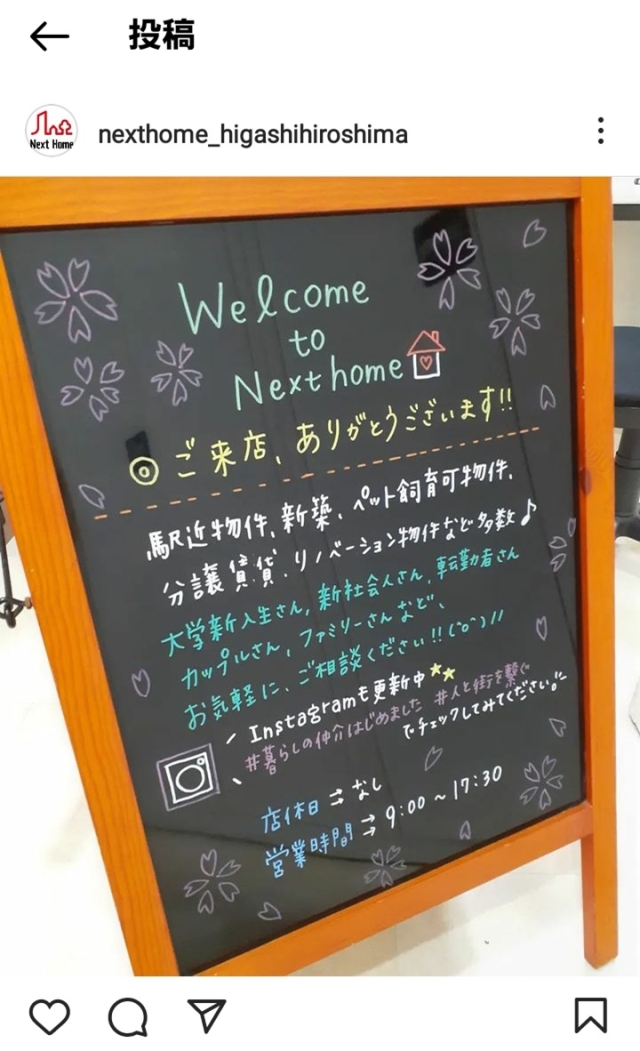 投稿
Next Home
nexthome_higashihiroshima
Welcome
to
Next home
◎ ご来店、ありがとうございます!!
駅近物件、新築、ペット飼育可物件、
分譲賃貸、リノベーション物件など多数♪
大学新入生さん、新社会人さん、転勤者さん
カップルさん、ファミリーさんなど、
お気軽に、ご相談ください!!(^o^)//
Instagramも更新中★★
#暮らしの仲介はじめました #人と街を繋ぐ
でチェックしてみてください。
店休日⇒なし
営業時間⇒9:00~17:30